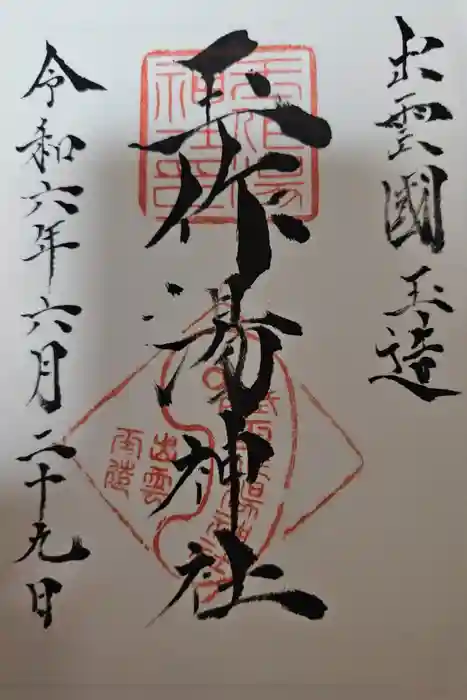 出雲國 玉造
玉作湯神社
令和六年六月二十九日
出雲
玉造